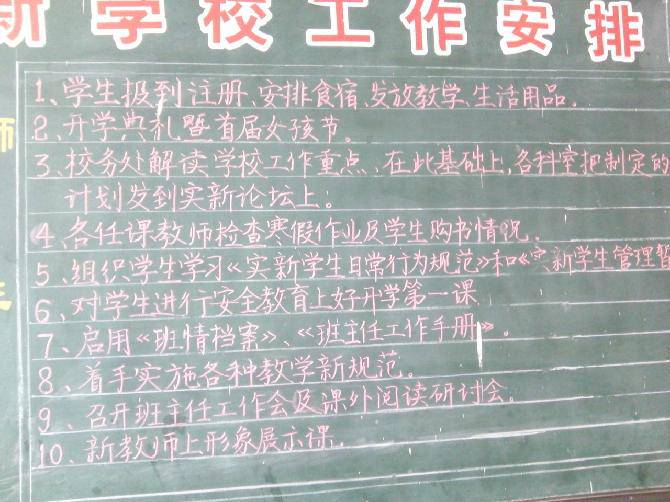 新学校工作安排
师
1、学生报到注册、安排食宿、发放教学、生活用品。
2、开学典礼暨首届女孩节。
3、校务处解读学校工作重点、在此基础上,各科室把制定的
计划发到实新论坛上。
4、各任课教师检查寒假作业及学生购书情况。
5、组织学生学习《实新学生日常行为规范》和《实新学生管理
6、对学生进行安全教育上好开学第一课
7、启用《班情档案》、《班主任工作手册》。
8、着手实施各种教学新规范。
9、召开班主任工作会及课外阅读研讨会。
10、新教师上形象展示课.